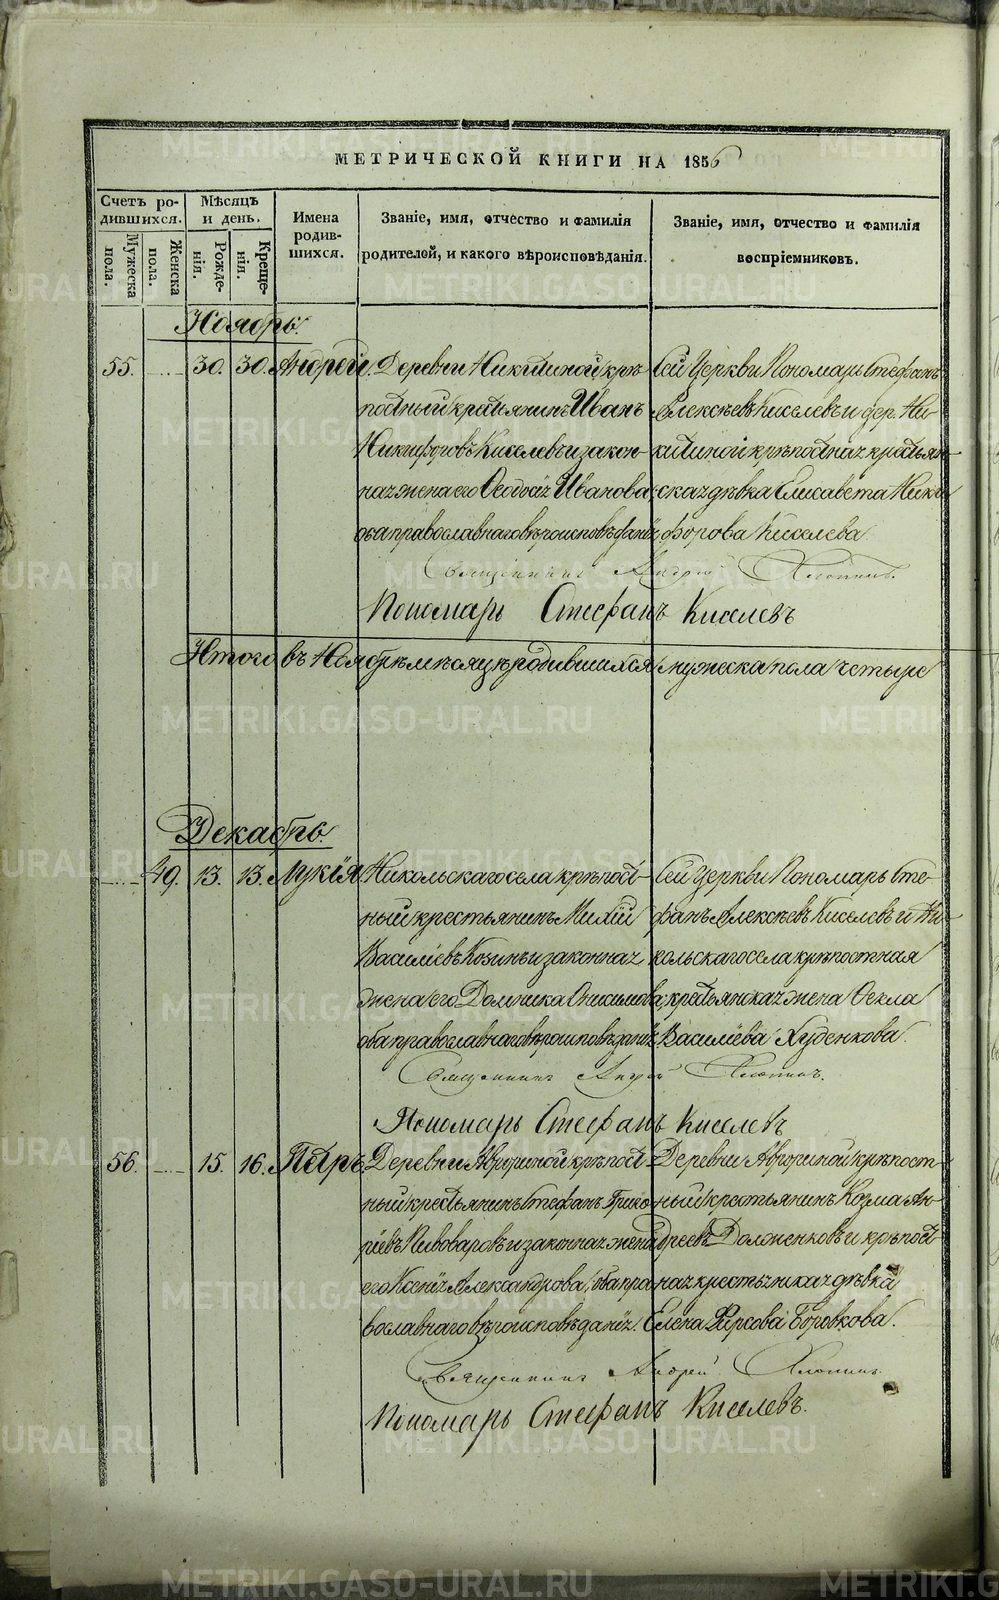 МЕТРИЧЕСКОЙ КНИГИ НА 1856
Счетъ ро-
дившихся.
Мѣсяцъ
и день.
Имена
родив-
шихся.
Званіе, имя, отчество и фамилія
родителей, и какого вѣроисповѣданія.
Званіе, имя, отчество и фамилія
воспріемниковъ.
Мужеска
пола.
Женска
пола.
Рожде-
нія.
Креще-
нія.
Ноябрь.
55. 30. 30. Андрей.
Деревни Никитиной крѣ-
постный крестьянинъ Иванъ
Никифоровъ Киселевъ и закон-
ная жена его Ѳеодосія Иванова
оба православнаго вѣроисповѣданія
Сей Церкви Пономарь Стефанъ
Алексѣевъ Киселевъ и дер. Ни-
китиной крѣпостная крестьян-
ская дѣвка Елисавета Ники-
форова Киселева.
Священникъ Андрей
Пономарь Стефанъ Киселевъ
Итого въ Ноябрѣ мѣсяцѣ родившихся мужеска пола четыре
Декабрь.
49. 13. 13. Лукія
Никольскаго села крѣпост-
ный крестьянинъ
Василіевъ Козинъ и законная
жена его Домника Онисимова
оба православнаго вѣроисповѣданія
Сей Церкви Пономарь Сте-
фанъ Алексѣевъ Киселевъ и Ни-
кольскаго села крѣпостная
крестьянская жена Ѳекла
Василіева Худенкова.
Священникъ Андрей
Пономарь Стефанъ Киселевъ
56. 15. 16. Петръ
Деревни Аверинной крѣпост-
ный крестьянинъ Стефанъ Григо-
ріевъ Пивоваровъ и законная жена
его Ксенія Александрова, оба пра-
вославнаго вѣроисповѣданія.
Деревни Аверинной крѣпост-
ный крестьянинъ Козма Ан-
дреевъ Долженковъ и крѣпост-
ная крестьянская дѣвка
Елена Фирсова Боровкова.
Священникъ Андрей
Пономарь Стефанъ Киселевъ.
METRIKI.GASO-URAL.RU